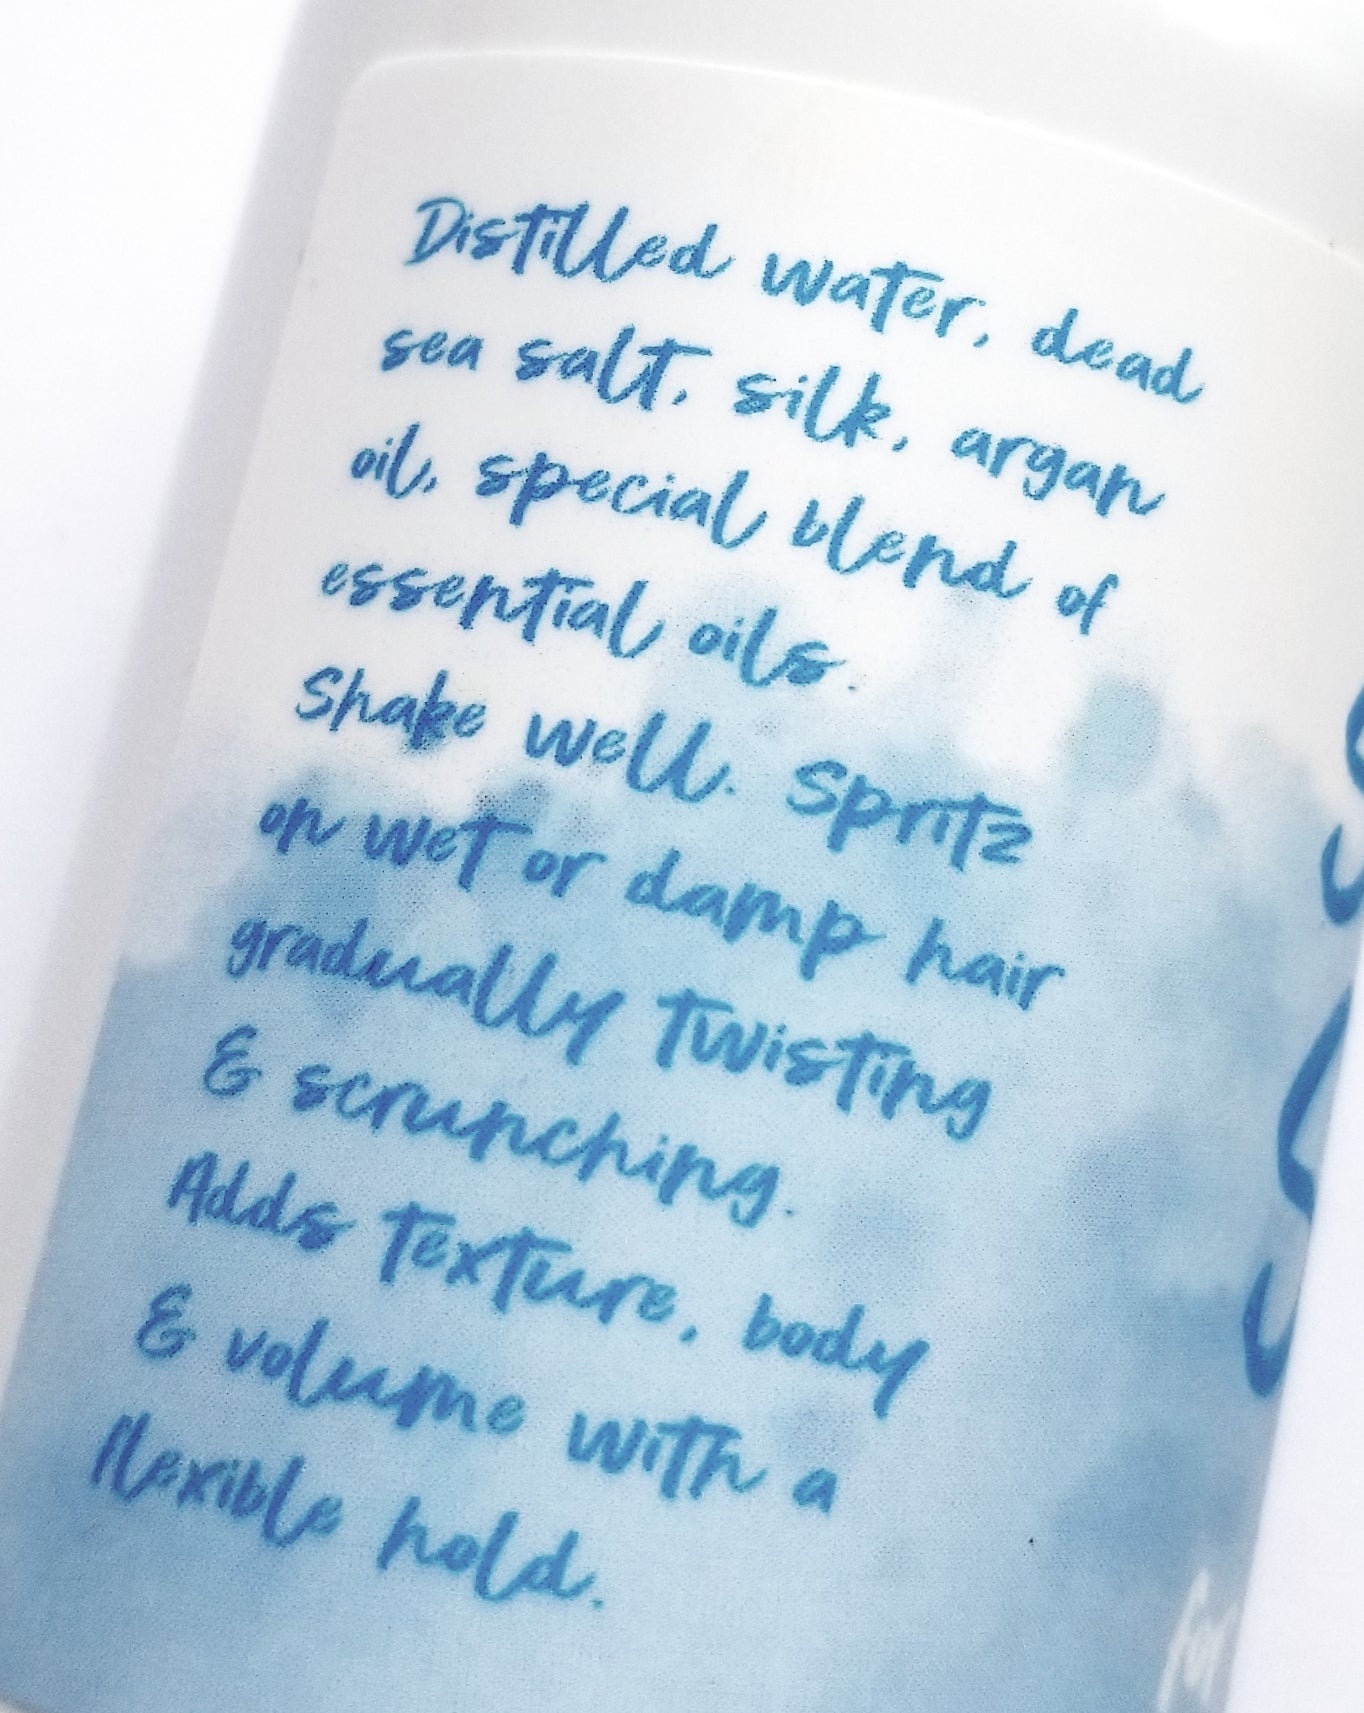 Distilled water, dead
sea salt, silk, argan
oil, special blend of
essential oils.
Shake well. Spritz
on wet or damp hair
gradually twisting
& scrunching.
Adds texture, body
& volume with a
flexible hold.
for